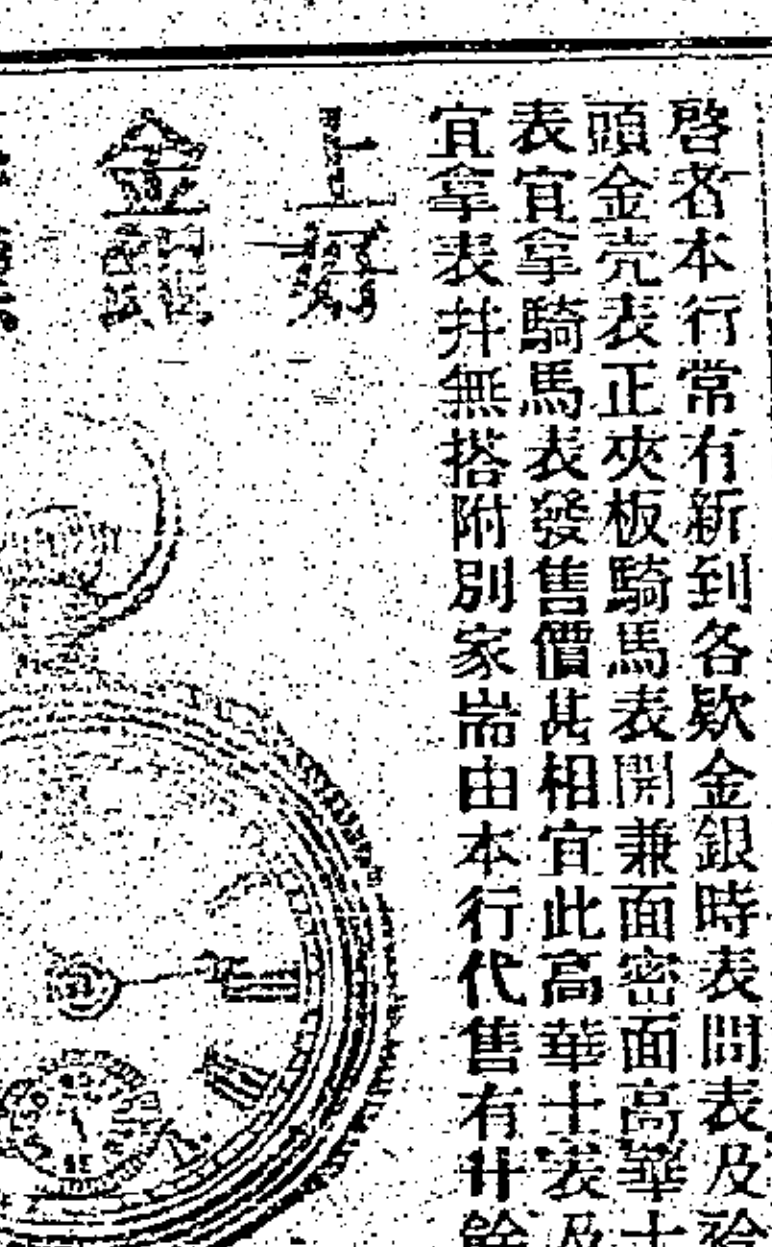 啓者本行常有新到各欵金銀時表問表及袷
頭金壳表正夾板騎馬表開兼面密面高華士
表宜拿騎馬表發售價甚相宜此高華士表及
宜拿表幷無搭附別家耑由本行代售有廿餘
上好
金銀